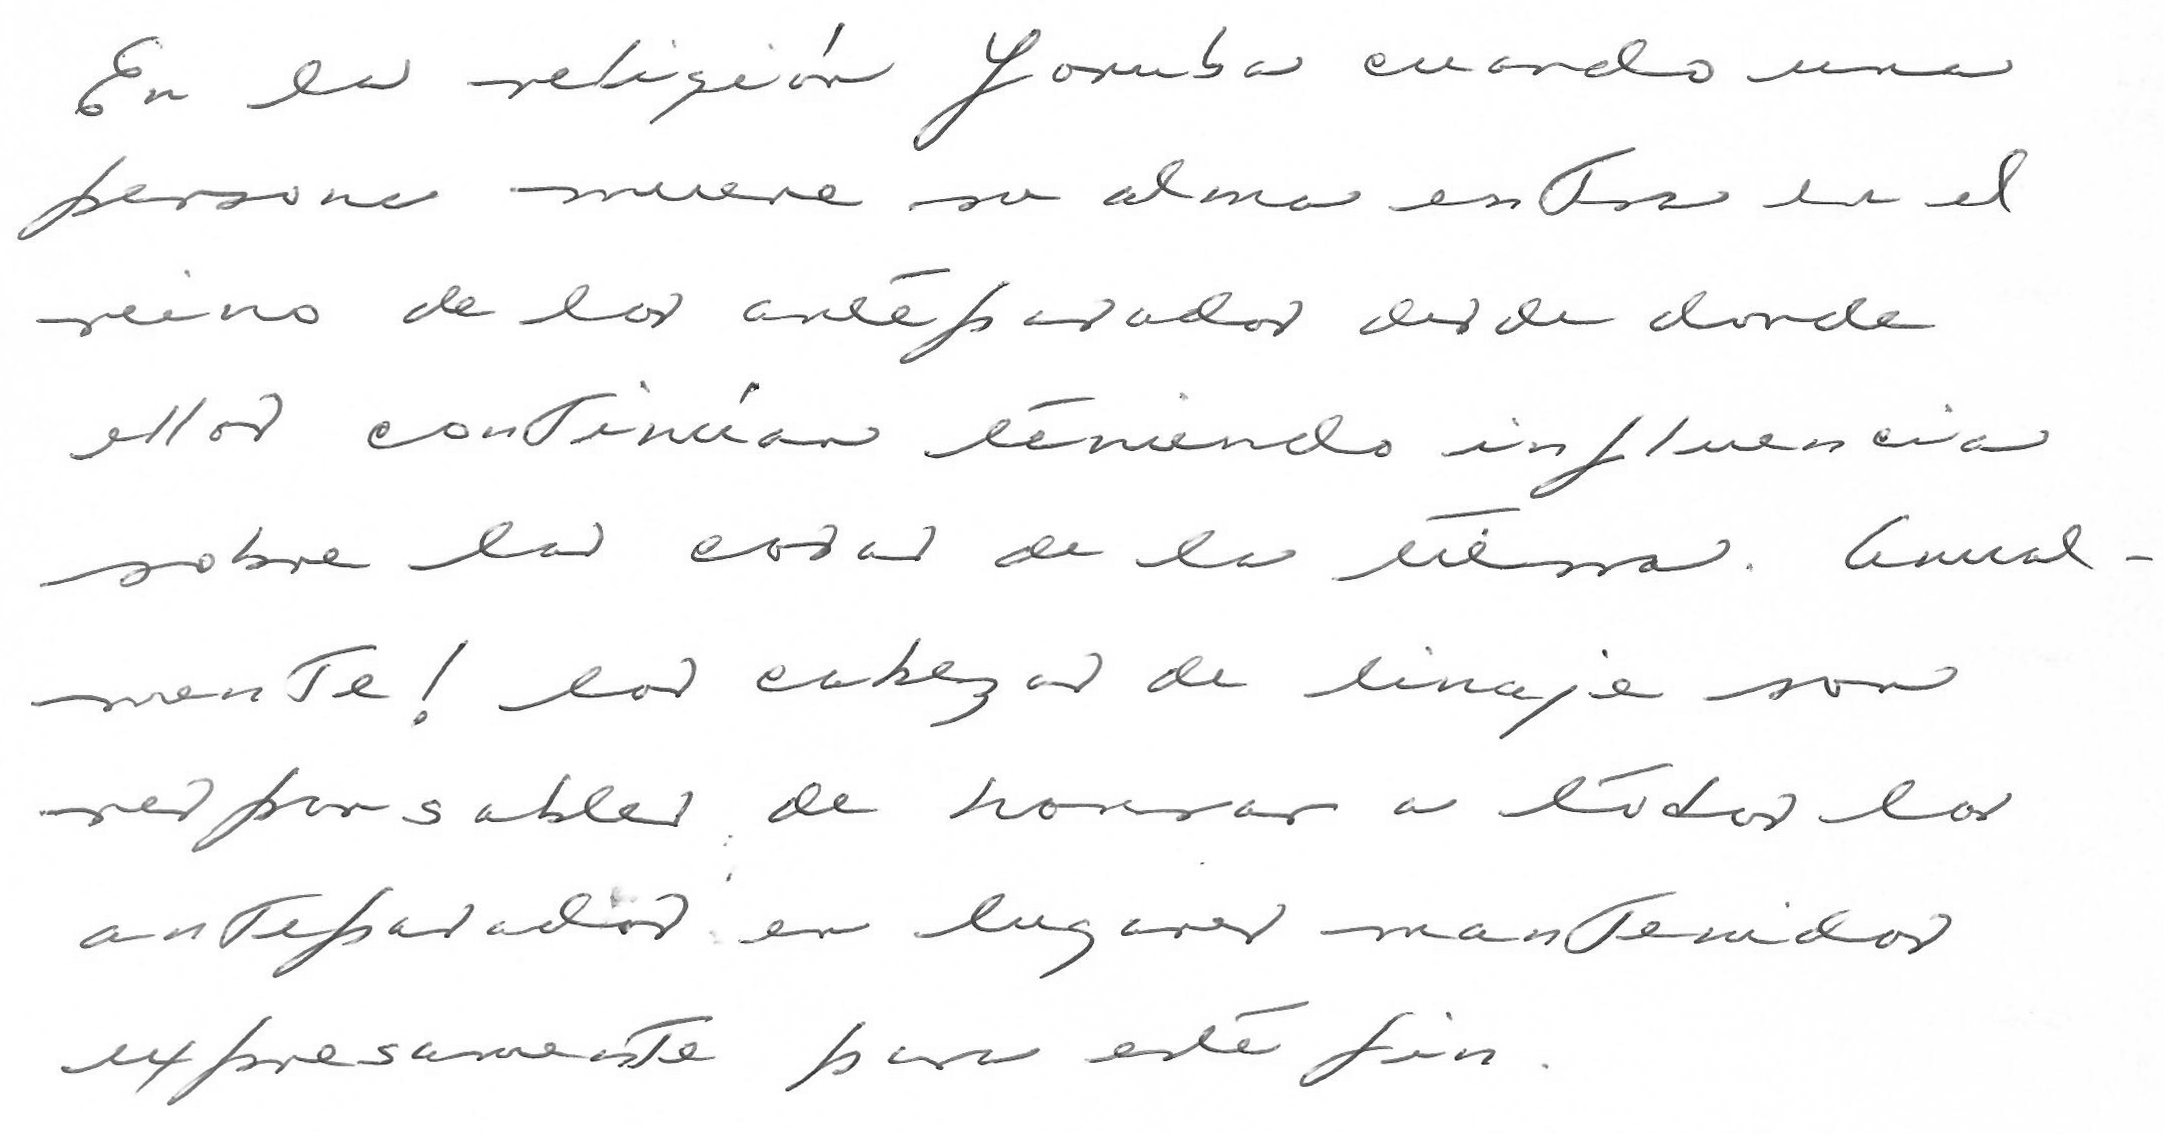 En la religión Yoruba cuando una
persona muere su alma entra en el
reino de los antepasados desde donde
ellos continúan teniendo influencia
sobre las cosas de la tierra. Anual-
mente! los cabezas de linaje son
responsables de honrar a todos los
antepasados en lugares mantenidos
expresamente para este fin.